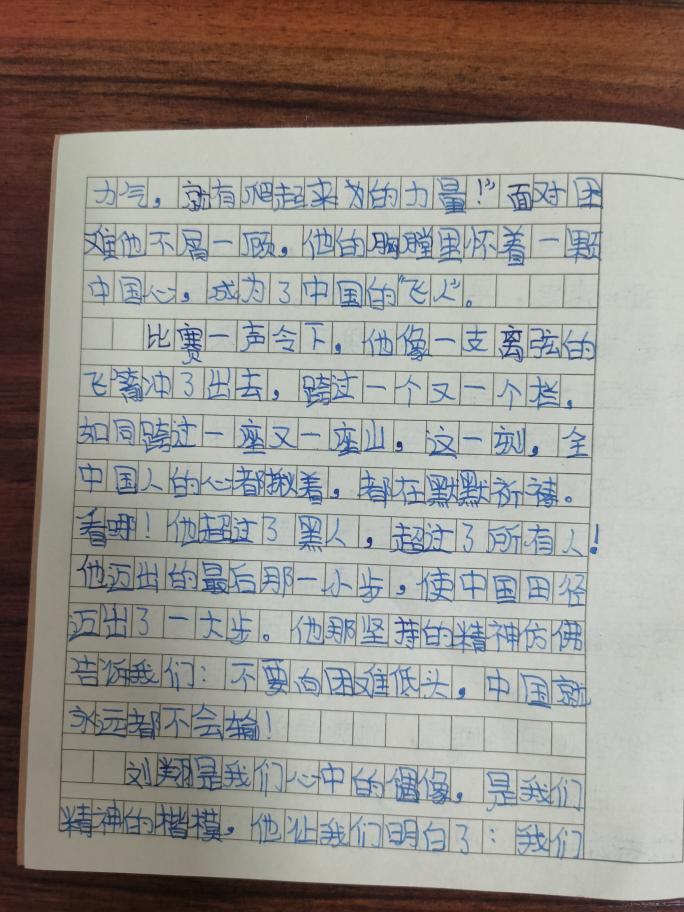 力气，就有爬起来为的力量！”面对困
难他不屑一顾，他的胸膛里怀着一颗
中国心，成为了中国的“飞人”。
比赛一声令下，他像一支离弦的
飞箭冲了出去，跨过一个又一个栏，
如同跨过一座又一座山，这一刻，全
中国人的心都揪着，都在默默祈祷。
看哪！他超过了黑人，超过了所有人！
他迈出的最后那一小步，使中国田径
迈出了一大步。他那坚持的精神仿佛
告诉我们：不要向困难低头，中国就
永远都不会输！
刘翔是我们心中的偶像，是我们
精神的楷模，他让我们明白了：我们